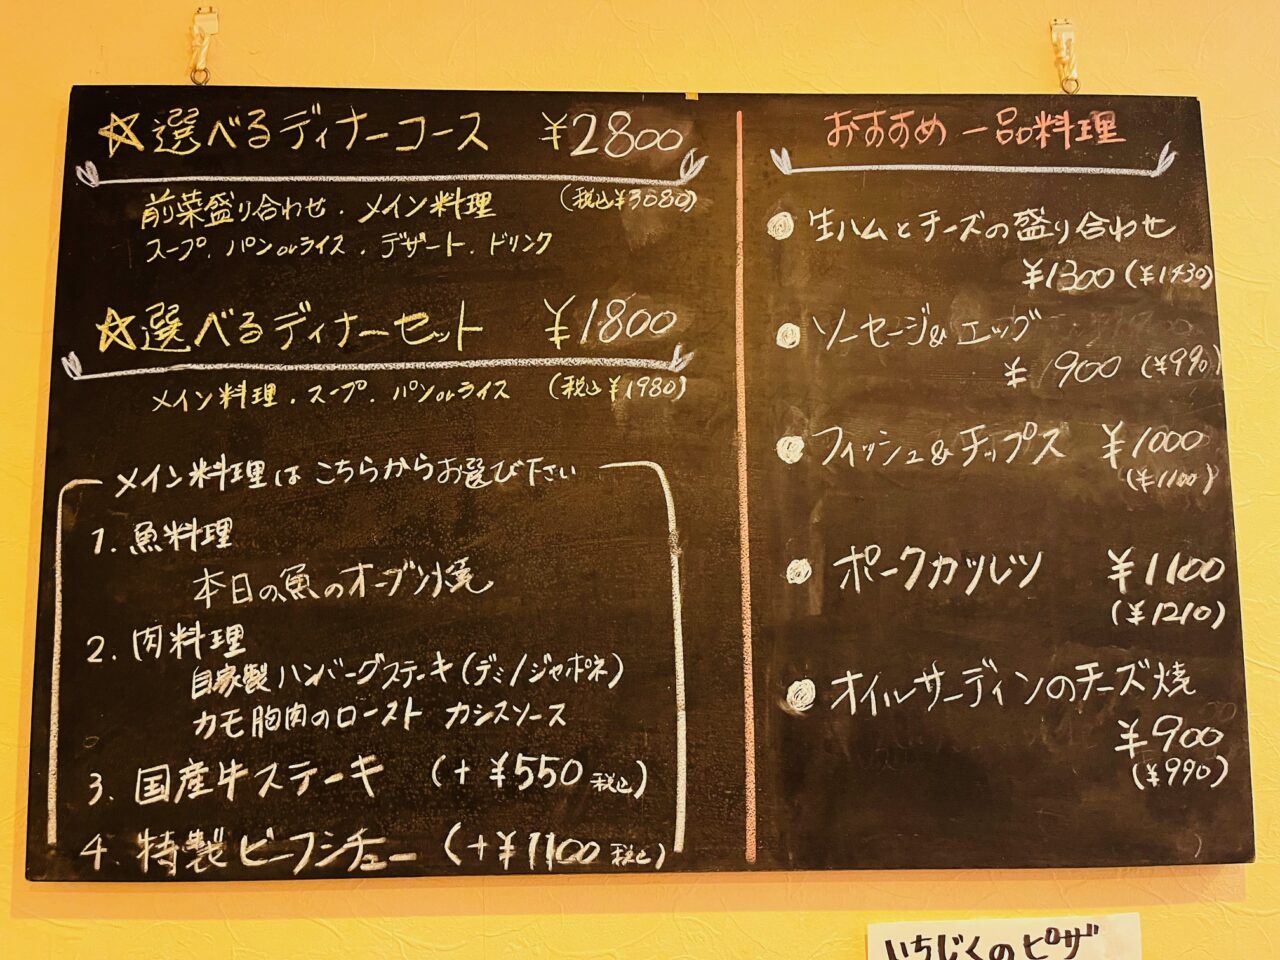 ☆選べるディナーコース ¥2800
前菜盛り合わせ・メイン料理 (税込¥3080)
スープ・パンorライス・デザート・ドリンク
☆選べるディナーセット ¥1800
メイン料理・スープ・パンorライス (税込¥1980)
メイン料理はこちらからお選び下さい
1. 魚料理
本日の魚のオーブン焼
2. 肉料理
自家製ハンバーグステーキ(デミ/ジャポネ)
カモ胸肉のロースト カシスソース
3. 国産牛ステーキ (+¥550税込)
4. 特製ビーフシチュー (+¥1100税込)
おすすめ一品料理
●生ハムとチーズの盛り合わせ
¥1300(¥1430)
●ソーセージ&エッグ
¥900(¥990)
●フィッシュ&チップス ¥1000
(¥1100)
●ポークカツレツ ¥1100
(¥1210)
●オイルサーディンのチーズ焼
¥900
(¥990)
いちじくのピザ